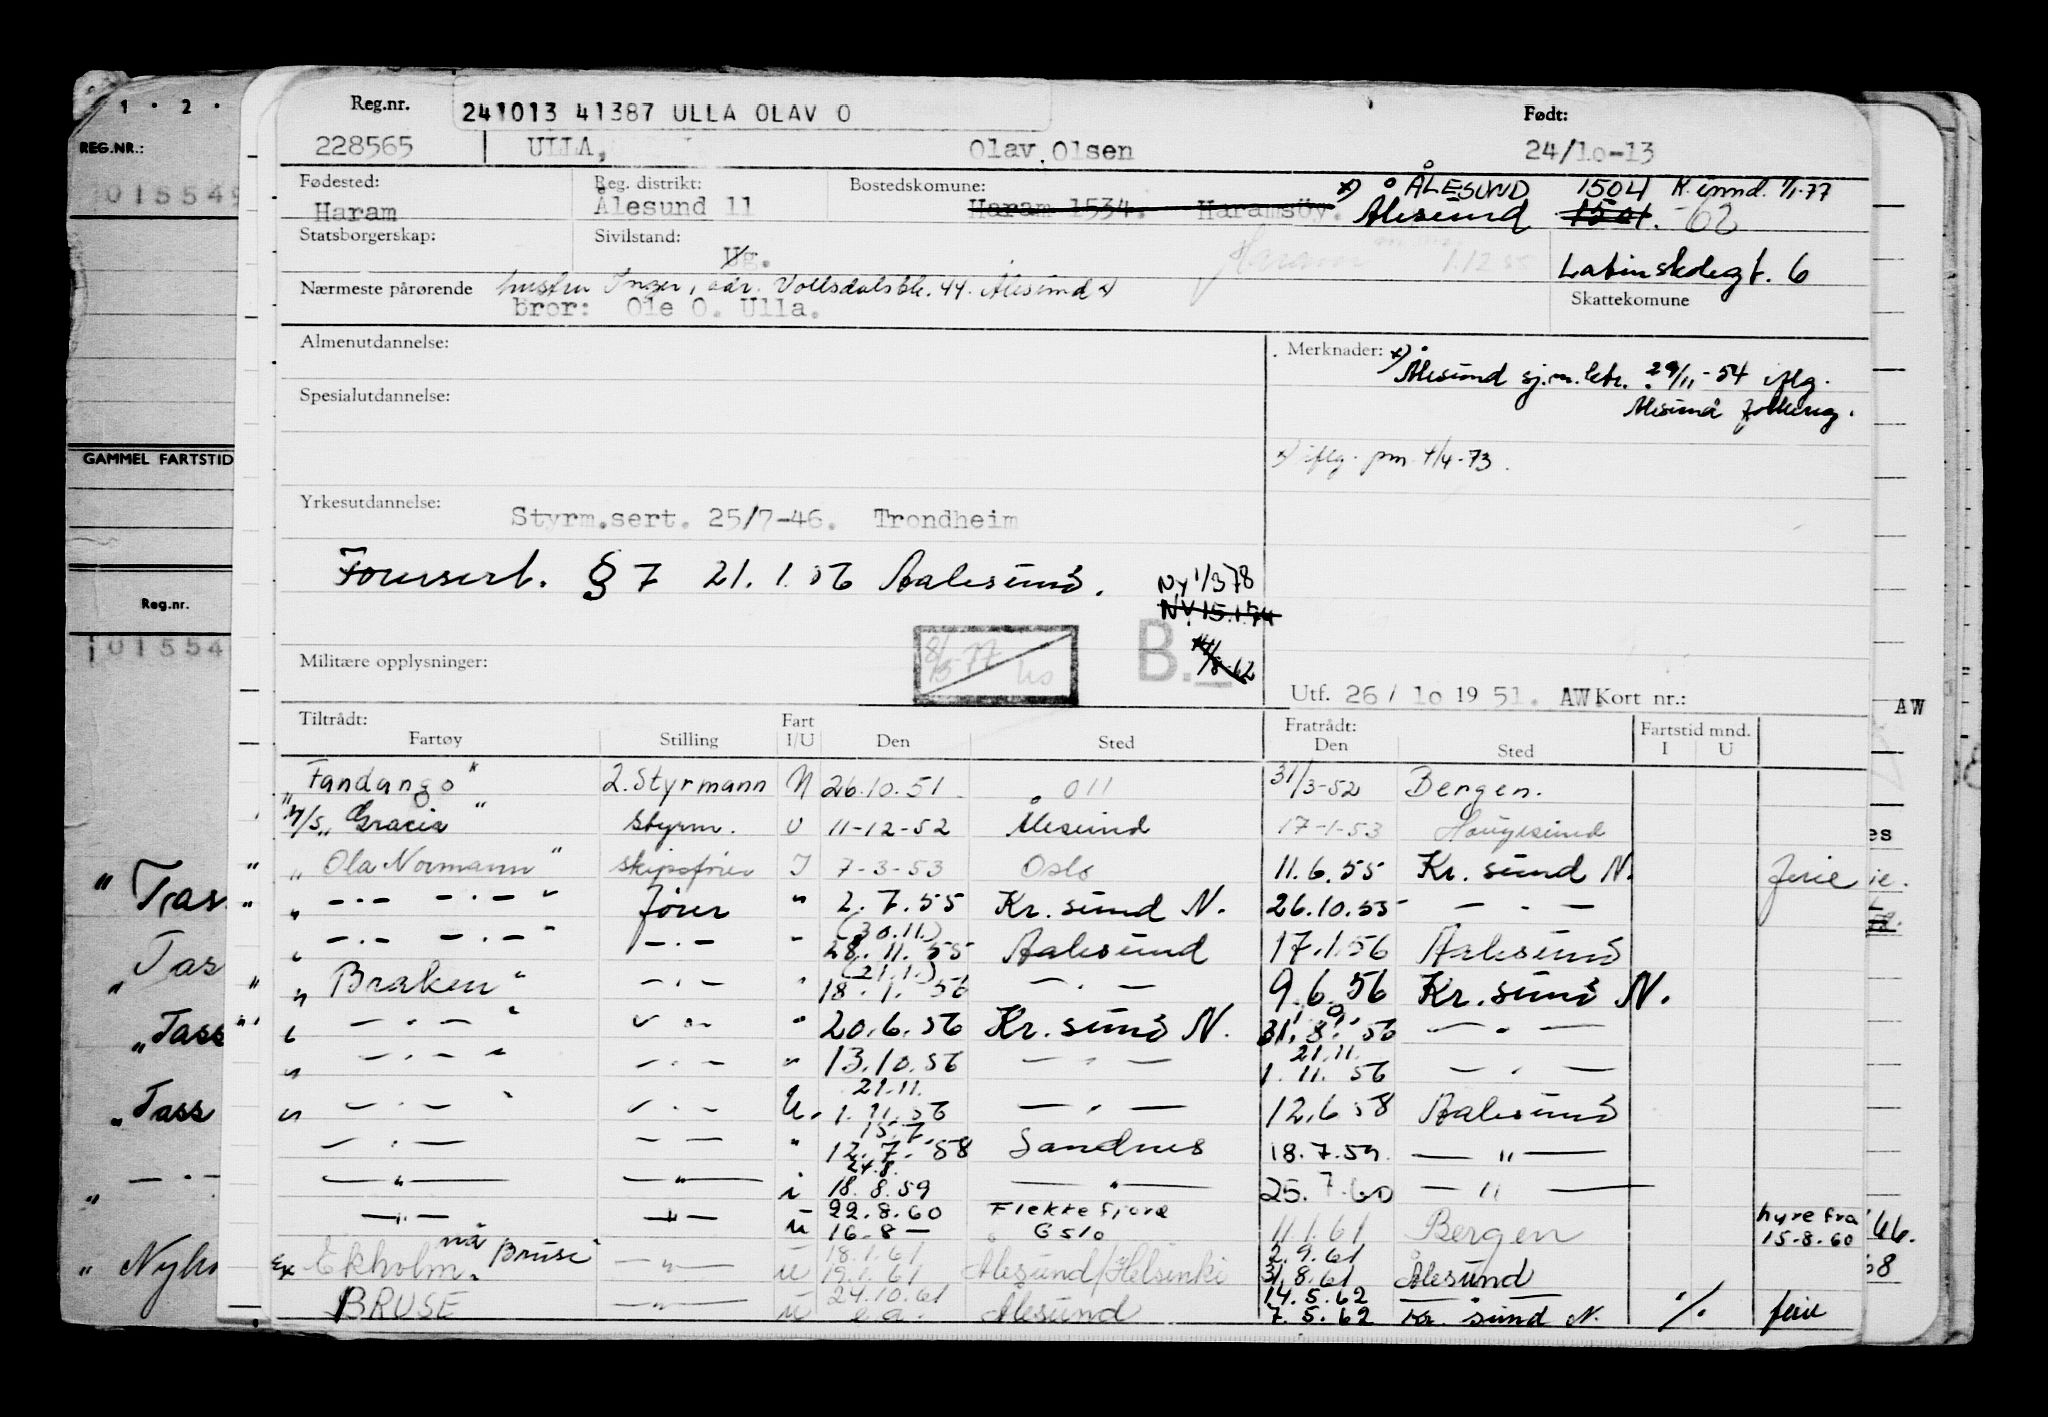 1 · 2 ·
REG.NR.:
015549
GAMMEL FARTSTID
Reg.nr.
101554
„ Tras
„ Tas
„ Tass
„ Tass
„ — · -
„ Nyho
Reg.nr. 241013 41387 ULLA OLAV O Født:
228565 ULLA, Olav Olsen 24/10-13
Fødested: Reg. distrikt: Bostedskomune: x) ÅLESUND 1504 K. innd. 1/1-77
Haram Ålesund 11 Haram 1534. Haramsöy. Ålesund 1501. -62
Statsborgerskap: Sivilstand: Ug. Haram 1.12 55 Latinskolegt. 6
Nærmeste pårørende hustru Inger, adr. Vollsdalsbk. 44. Ålesund x) Skattekomune
bror: Ole O. Ulla.
Almenutdannelse: Merknader: x) Ålesund sj.m.ktr. 29/11-54 iflg.
Ålesund folkereg.
Spesialutdannelse:
x) iflg. pm 4/4-73.
Yrkesutdannelse: Styrm.sert. 25/7-46. Trondheim
Førersert. § 7 21.1.56 Aalesund. Ny 1/3 78
NY 15.1.74
B. 14/8-62
Militære opplysninger: 8/3-77
Utf. 26/10 1951. AW Kort nr.: AW
Tiltrådt: Fart Fratrådt: Fartstid mnd.
Fartøy Stilling I/U Den Sted Den Sted I U
„Fandango" 2. Styrmann N 26.10.51 011 31/3-52 Bergen.
M/S „Gracia" Styrm. U 11-12-52 Ålesund 17-1-53 Haugesund
„ Ola Normann" skipsfører I 7-3-53 Oslo 11.6.55 Kr. sund N. ferie
„ —·— —·—" fører " 2.7.55 Kr. sund N. 26.10.55 — · —
(30.11.)
„ —·— —·—" —·— " 28.11.55 Aalesund 17.1.56 Aalesund
(21.1.)
„ Braken" —·— " 18.1.56 — · — 9.6.56 Kr. sund N.
„ — · — " — · — " 20.6.56 Kr. sund N. 31.8.56 — · —
21.11.
„ — · — " — · — " 13.10.56 — · — 1.11.56 — · —
21.11.
„ — · — " — · — U. 1.11.56 — · — 12.6.58 Aalesund
15.7.
— · — — — " 12.7.58 Sandnes 18.7.59 — " —
24.8.
— " — — " — i 18.8.59 — " — 25.7.60 — " —
22.8.60 Flekkefjord hyre fra
— " — — " — u 16.8 — Oslo 11.1.61 Bergen 15.8.60
18.1.61 2.9.61
Ex Ekholm nå Bruse" — " — u 19.1.61 Ålesund/Helsinki 31.8.61 Ålesund
24.10.61 14.5.62 —
BRUSE — " — u e.a. Ålesund 7.5.62 Kr. sund N. ·/· ferie
es
ie.
66.
68